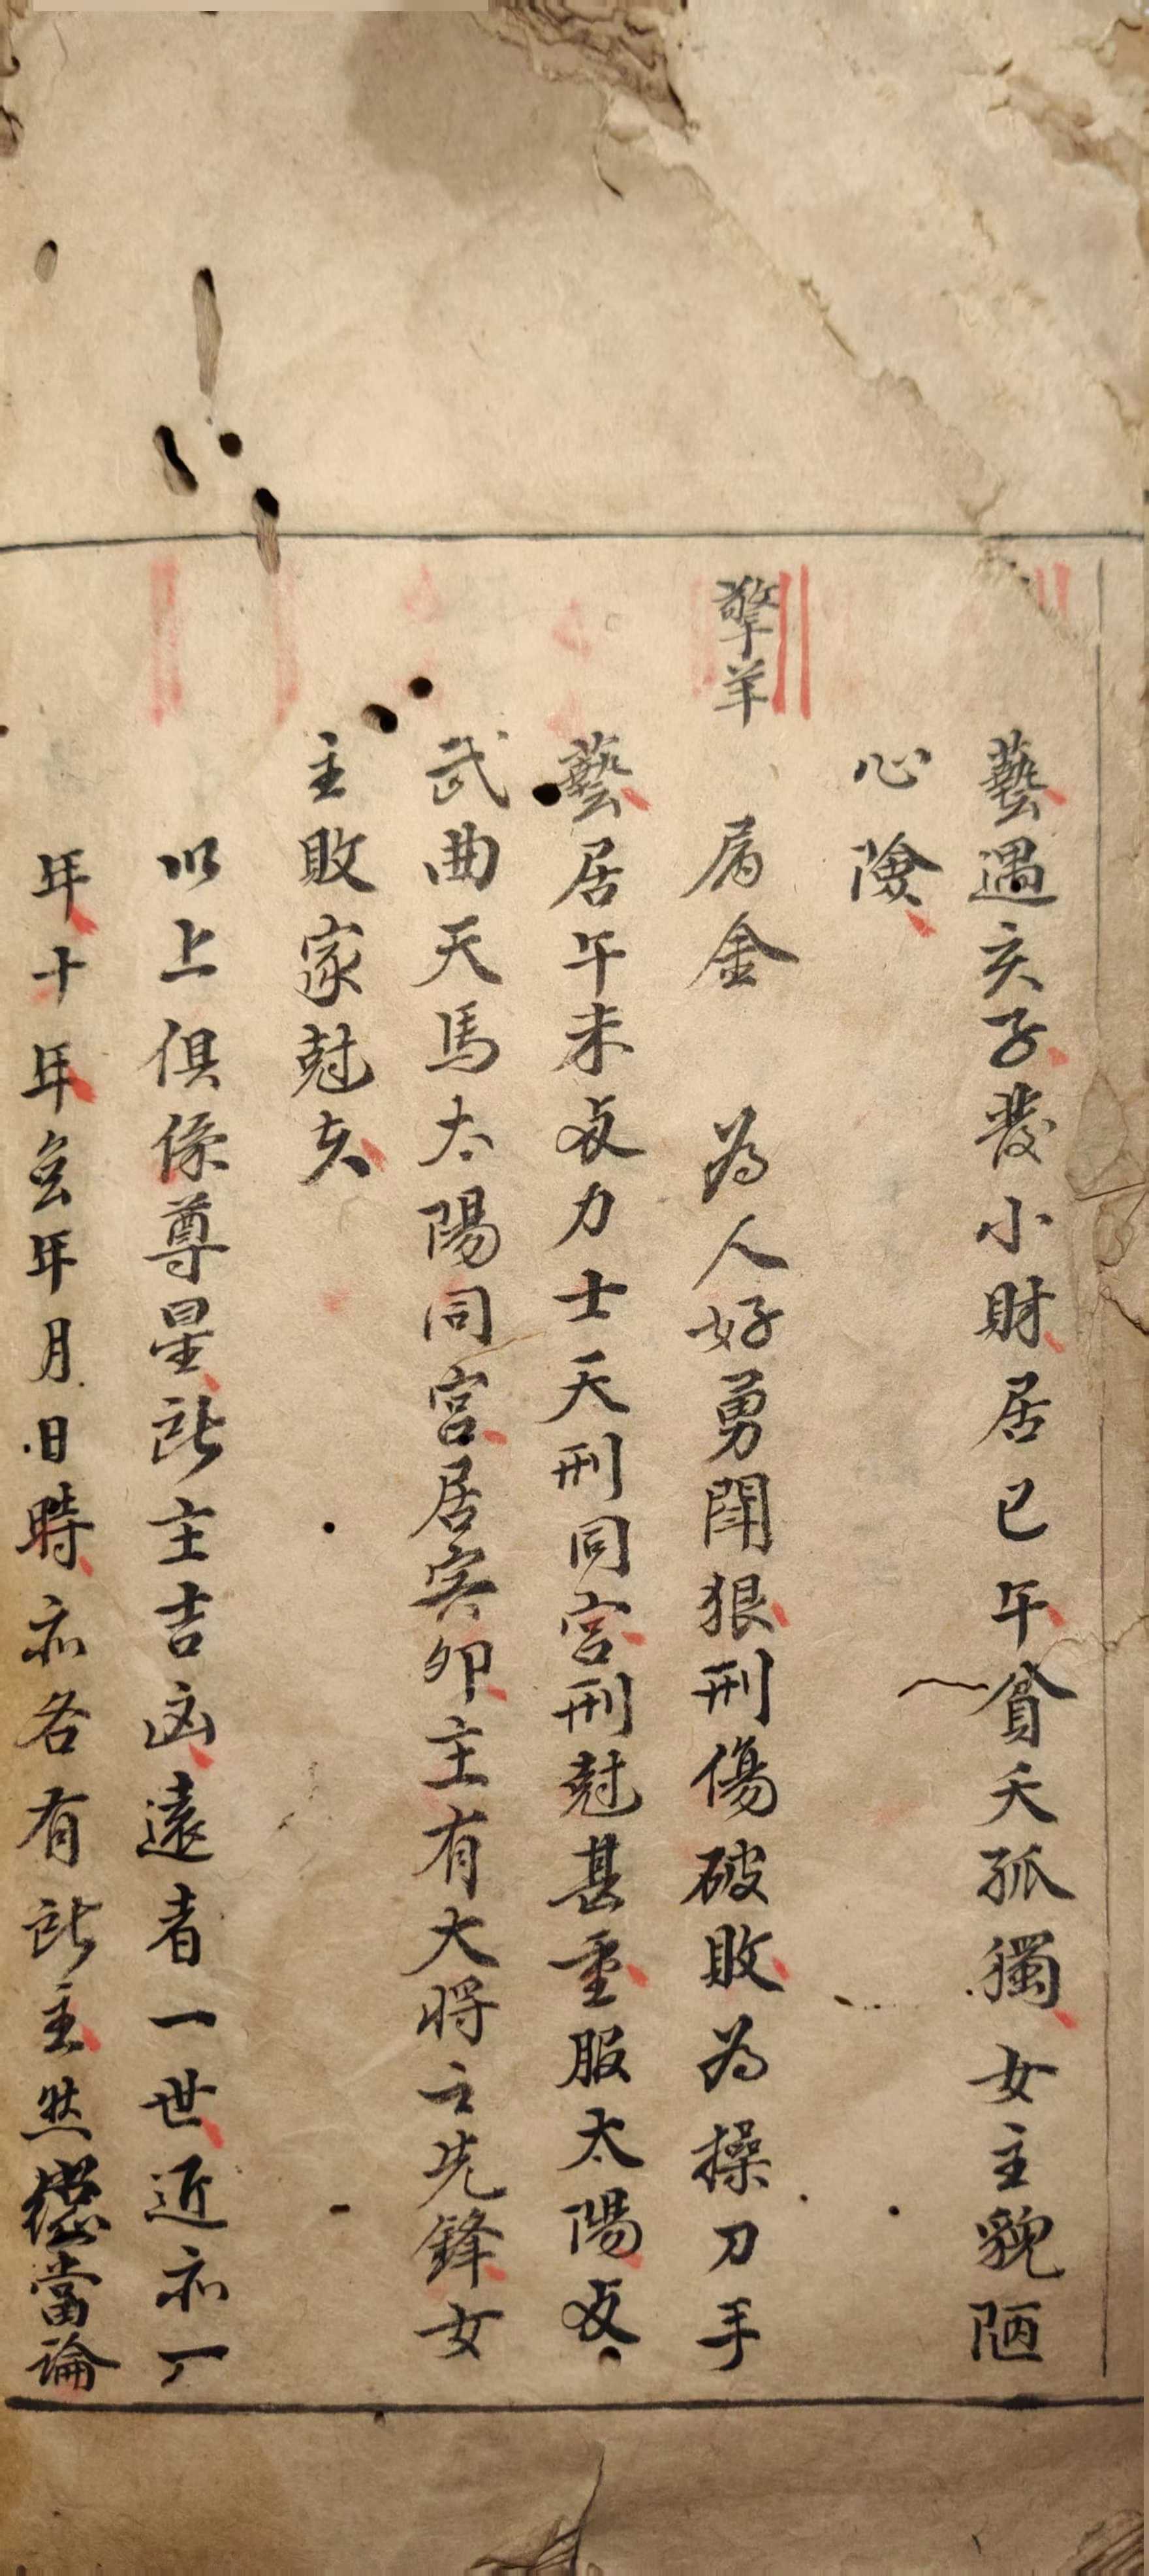 藝遇亥子發小財居巳午貧夭孤獨女主貌陋
心險
擎羊 属金 為人好勇鬪狠刑傷破敗為操刀手
藝居午未及力士天刑同宮刑尅甚重服太陽及
武曲天馬太陽同宮居寅卯主有大將之先鋒女
主敗家尅夫
以上俱係尊星所主吉凶遠者一世近亦一
年十年玄年月日時亦各有所主然總當論